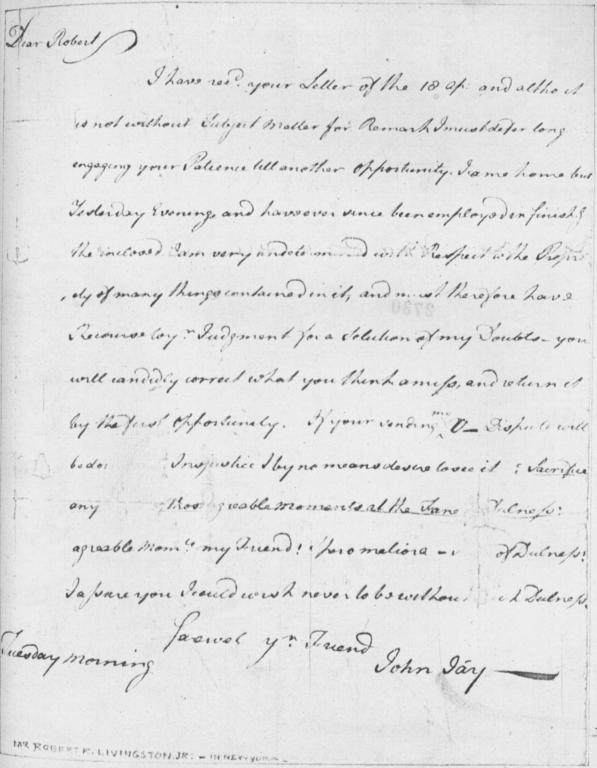 Dear Robert
I have recd. your Letter of the 18 Ap: and altho it
is not without Subject Matter for Remark I must defer long
engaging your Patience till another opportunity. I came home but
Yesterday Evening, and have ever since been employed in finishg
the inclosed I am very undetermined with Respect to the Propri
ety of many things contained in it, and must therefore have
Recourse to yr. Judgment for a Solution of my Doubts - you
will candidly correct what you think amiss, and return it
by the first opportunity. If your sending me D— Dispute will
be do Injustice I by no means desire to see it : Sacrifice
any those agreable moments at the Fane Dulness:
agreable Momts. my Friend! Spero meliora - of Dulness!
I assure you I could wish never to be without Dulness.
Farewel yr. Friend
John Jay
Tuesday Morning
MR ROBERT R. LIVINGSTON, JR: - IN NEW YORK -